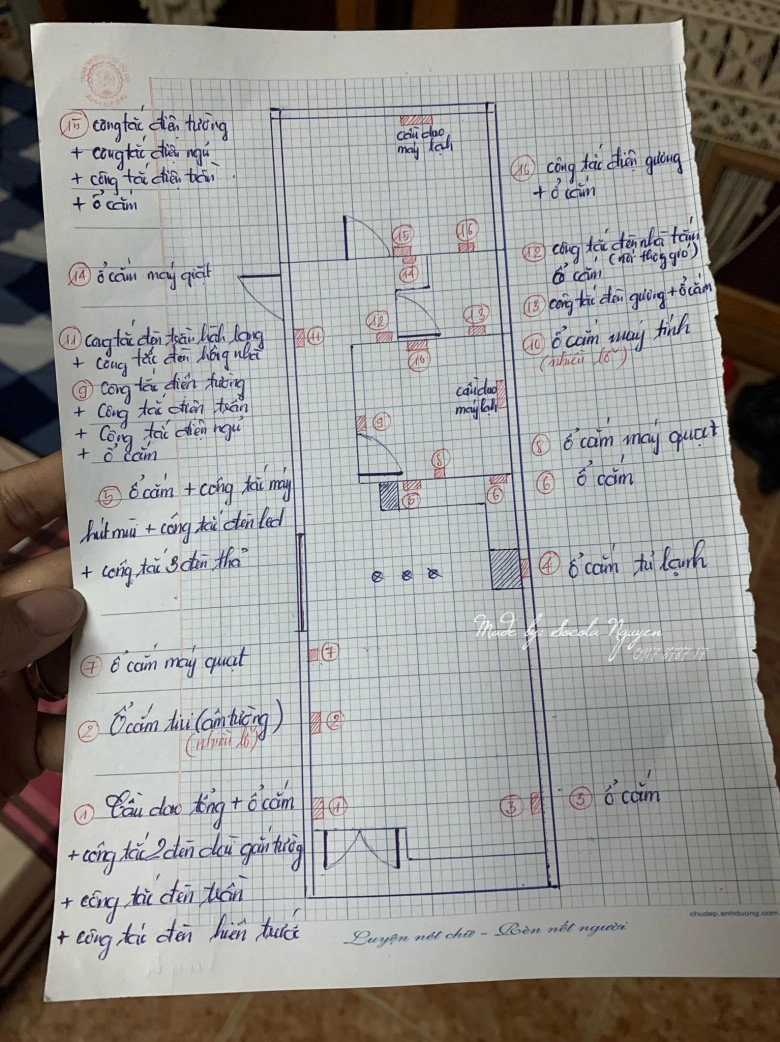 15 công tắc điện tường
+ công tắc điện ngủ
+ công tắc điện trần
+ ổ cắm
14 ổ cắm máy giặt
11 công tắc đèn trần hành lang
+ công tắc đèn hông nhà
9 công tắc điện tường
+ công tắc điện trần
+ công tắc điện ngủ
+ ổ cắm
5 ổ cắm + công tắc máy
hút mùi + công tắc đèn led
+ công tắc 3 đèn thả
7 ổ cắm máy quạt
2 Ổ cắm tivi (âm tường)
(nhiều lỗ)
1 Cầu dao tổng + ổ cắm
+ công tắc 2 đèn gắn tường
+ công tắc đèn trần
+ công tắc đèn hiên trước
cầu dao
máy lạnh
15
16
14
11
12
13
10
cầu dao
máy lạnh
9
8
5
6
7
2
1
3
16 công tắc điện gương
+ ổ cắm
12 công tắc đèn nhà tắm
ổ cắm (nối thông gió)
13 công tắc đèn gương + ổ cắm
10 ổ cắm máy tính
(nhiều lỗ)
8 ổ cắm máy quạt
6 ổ cắm
4 ổ cắm tủ lạnh
Made by: Socola Nguyen
0917 8787 17
3 ổ cắm
chudep.anhduong.com
Luyện nét chữ - Rèn nết người